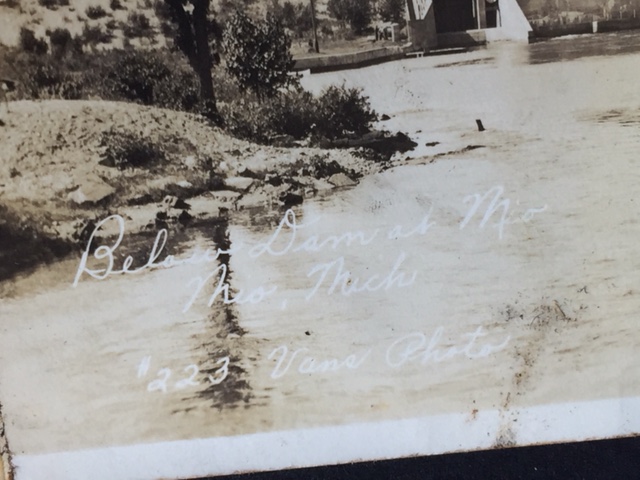 Below Dam at Mio
Mio, Mich
#223 Vans Photo